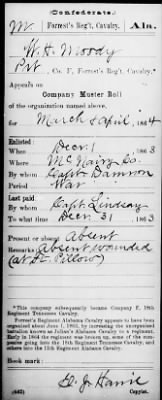 (Confederate.)
M Forrest's Reg't, Cavalry. Ala.
W. H. Moody
Pvt, Co. F, Forrest's Reg't, Cavalry.*
Appears on
Company Muster Roll
of the organization named above,
for March & April, 1864
Enlisted:
When Decr. 1, 1863
Where McNairy Co.
By whom Capt. Damron
Period War
Last paid:
By whom Capt. Lindsay
To what time Decr. 31, 1863
Present or absent Absent
Remarks: Absent wounded
(at Ft. Pillow)
*This company subsequently became Company F, 18th
Regiment Tennessee Cavalry.
Forrest's Regiment Alabama Cavalry appears to have
been organized about June 1, 1863, by increasing the
battalion known as Julian's Alabama Cavalry to a regiment.
Early in 1864 the regiment was broken up, some of the companies
going into the 18th Regiment Tennessee Cavalry, and
others into the Regiment Alabama Cavalry.
Book mark:
(642) Copyist.